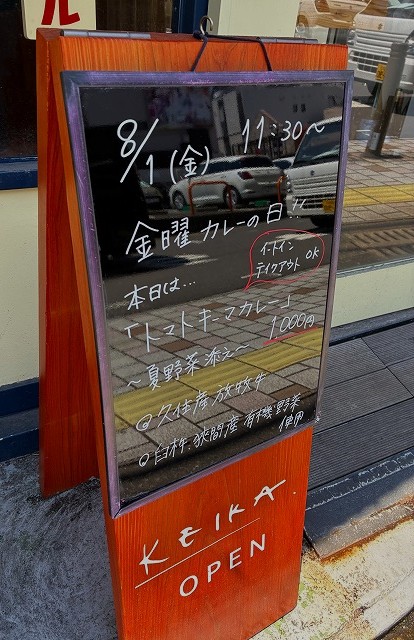 8/1(金) 11:30〜
金曜カレーの日!!
イートイン
テイクアウト OK
本日は…
「トマトキーマカレー」
〜夏野菜添え〜 1,000円
◎久住産 放牧牛
◎臼杵、狭間産 有機野菜
使用
KEIKA
OPEN